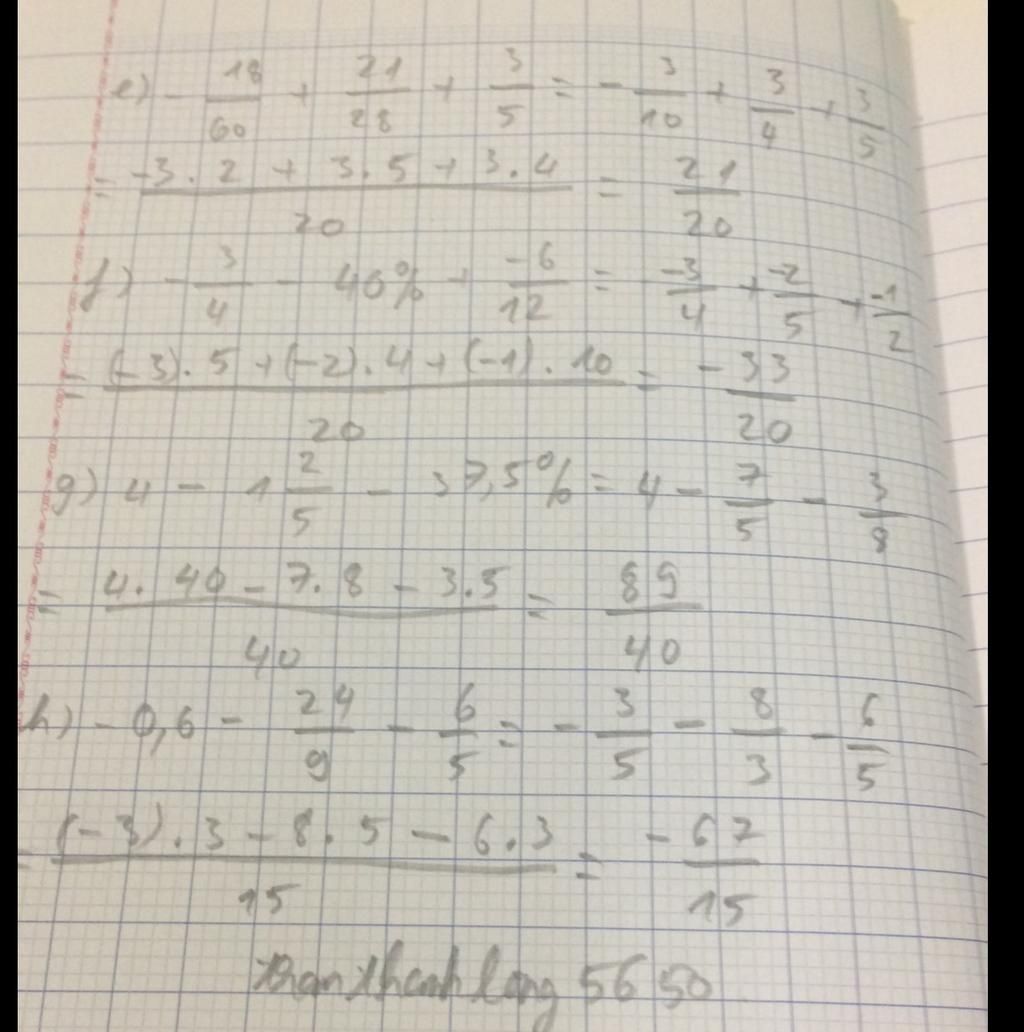 e) - 18/60 + 21/28 + 3/5 = - 3/10 + 3/4 + 3/5
= -3.2 + 3.5 + 3.4 / 20 = 21/20
f) - 3/4 - 40% + -6/12 = -3/4 + -2/5 + -1/2
= (-3).5 + (-2).4 + (-1).10 / 20 = -33/20
g) 4 - 1 2/5 - 37,5% = 4 - 7/5 - 3/8
= 4.40 - 7.8 - 3.5 / 40 = 89/40
h) - 0,6 - 24/9 - 6/5 = - 3/5 - 8/3 - 6/5
= (-3).3 - 8.5 - 6.3 / 15 = -67/15
tranthanhlong 5650